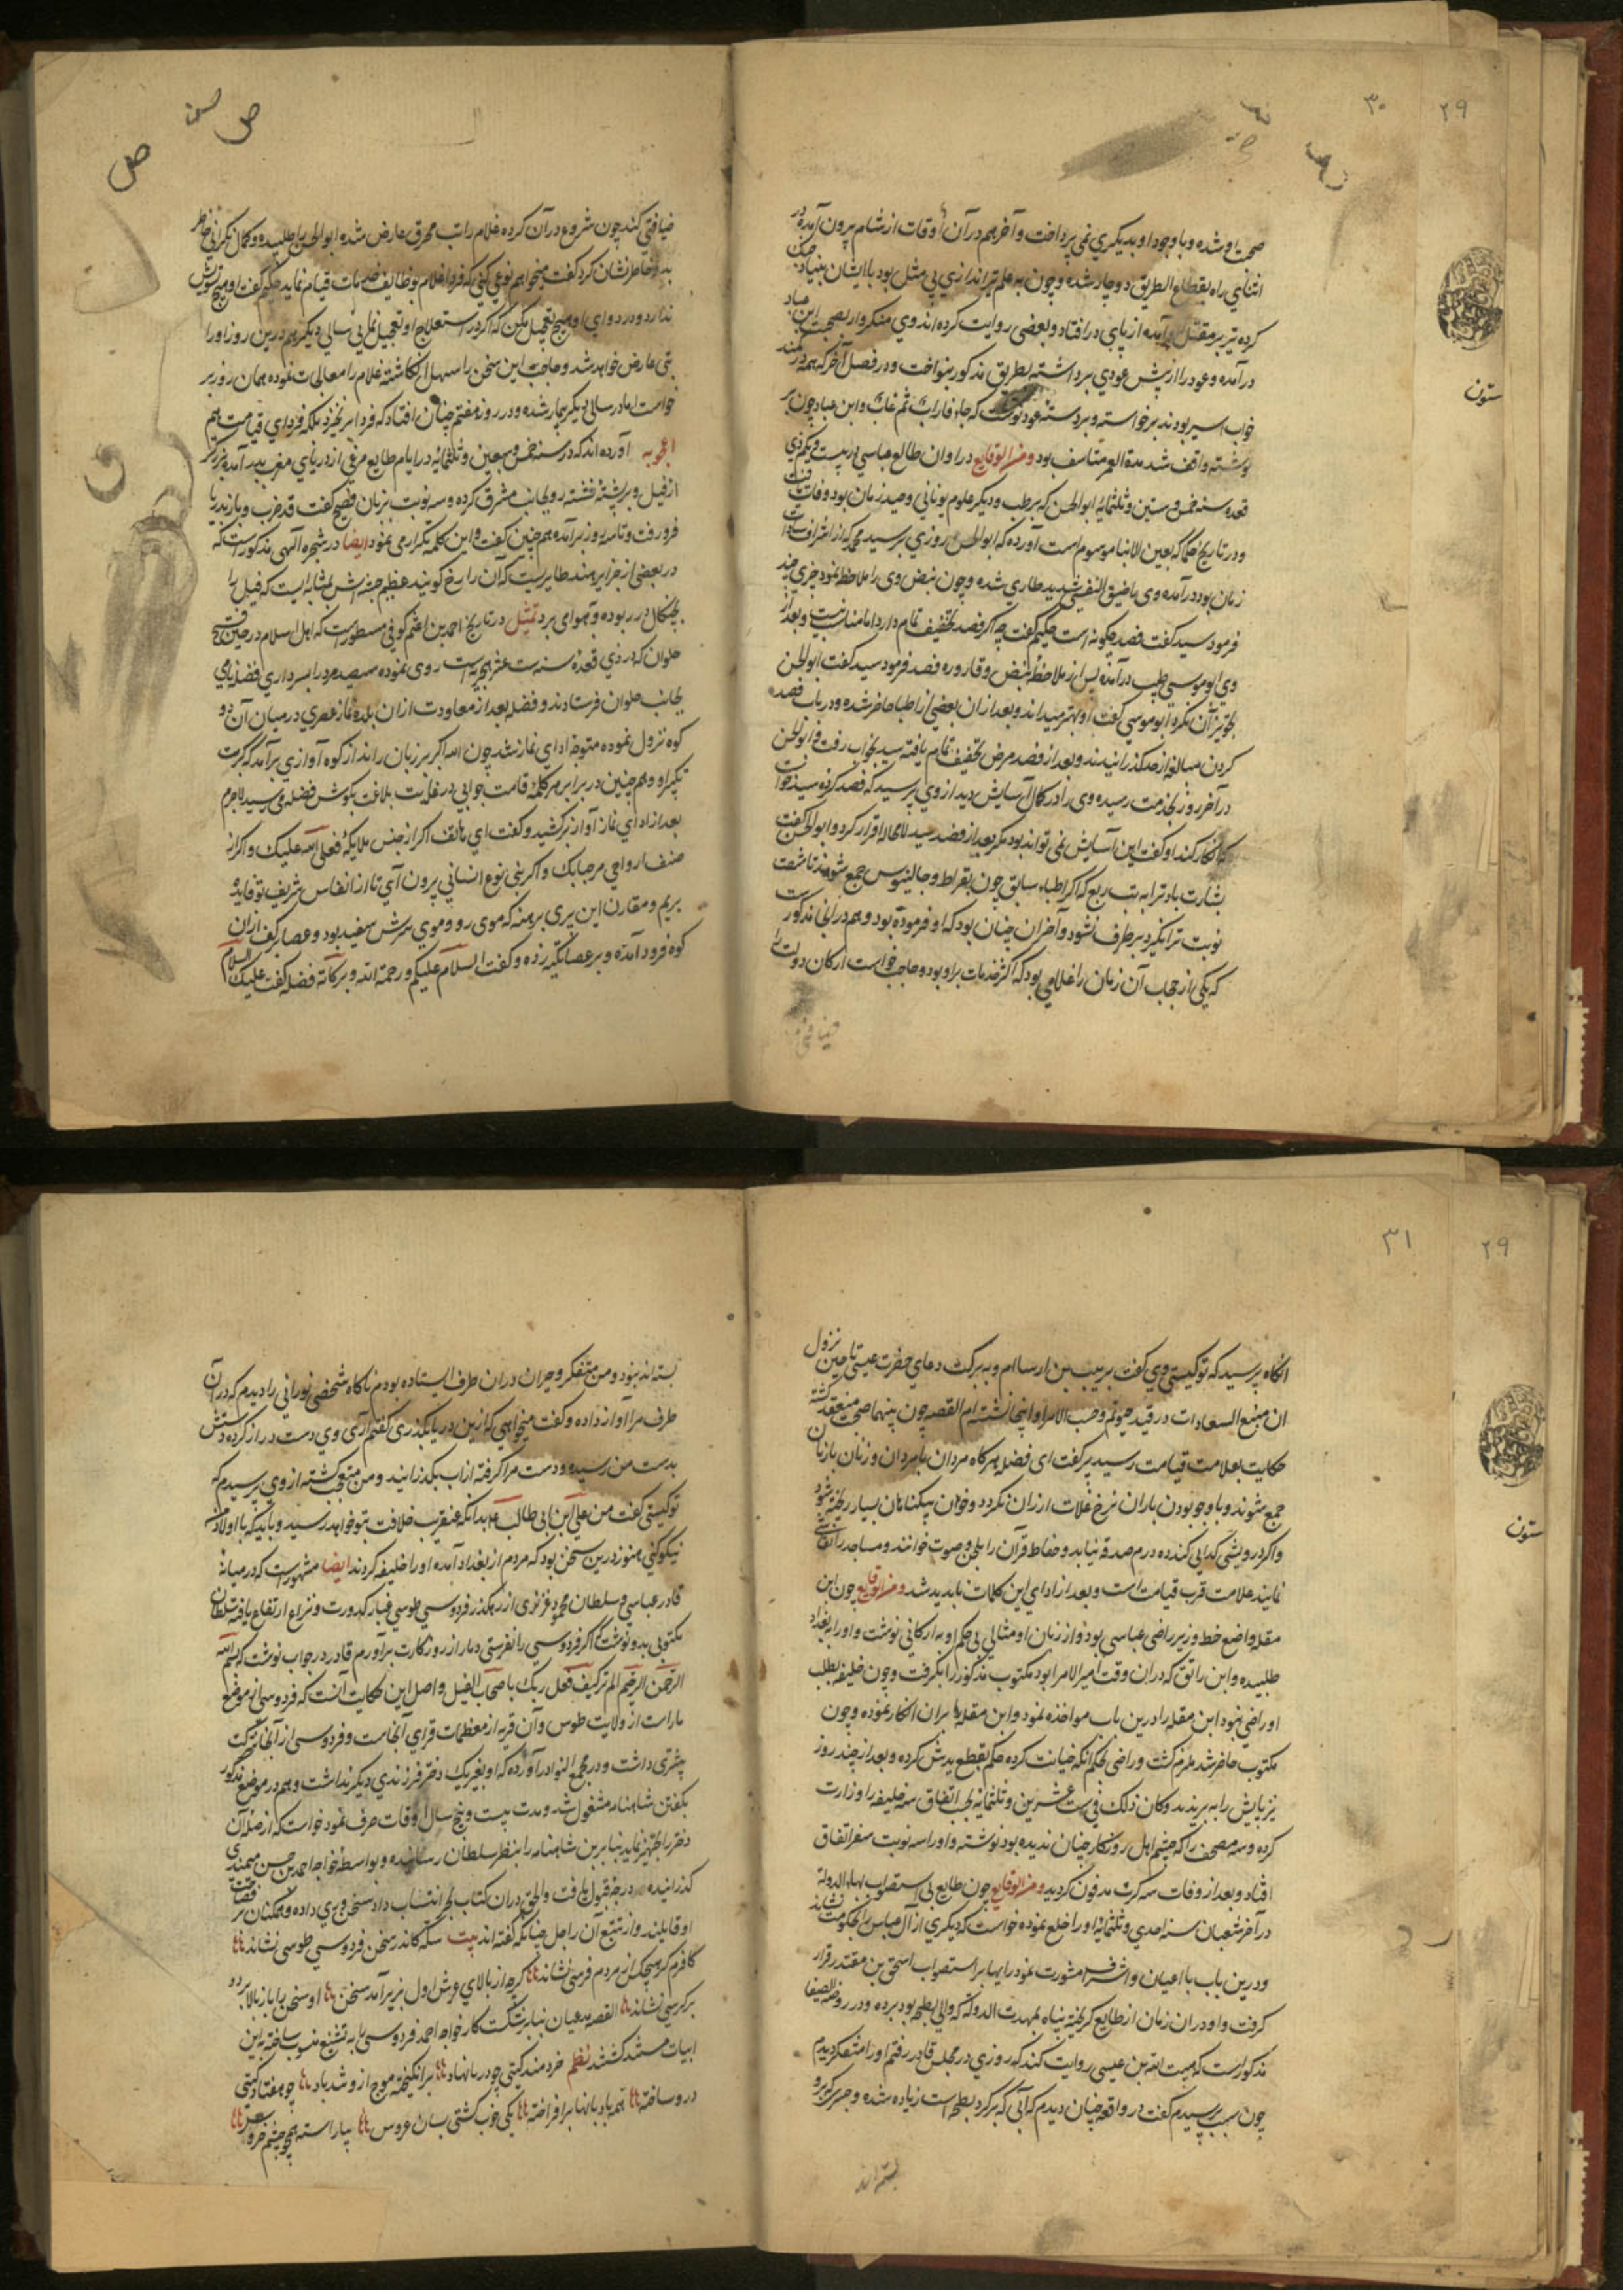 ۲۹
۳۰
صحبت او شده و با وجود او بدیگری نمی پرداخت و آخر هم در آن اوقات از شام بیرون آمده در
اثنای راه بقطاع الطریق دوچار شده و چون به علم تیراندازی بی مثل بود با ایشان بنیاد جنک
کرده تیر بر مقتل آمده از پای در افتاد و بعضی روایت کرده اند وی منکروار بصحبت ابن عباد
در آمده و عود را از پیش عودی برداشته بطریق مذکور بنواخت و در فصل آخر که همه در کمند
خواب اسیر بودند برخاسته و بر دسته عود نوشت که جاء فاراب ثم غاب و ابن عباد چون بر
نوشته واقف شد مدة العمر متاسف بود ومن الوقایع در اوان طالع عباسی در بیست و یکم ذی
قعده سنه خمس و ستین و ثلثمائه ابوالحسن که بر طب و دیگر علوم یونانی وحید زمان بود وفات یافت
و در تاریخ حکما که بعین الانبا موسوم است آورده که ابوالحسن روزی بر سید محمد که از اشراف سادات
زمان بود در آمده وی با ضیق النفس شدید طاری شده و چون نبض وی را ملاحظه نمود چیزی چند
فرمود سید کفت فصد چکونه است حکیم کفت چه اکر فصد تخفیف تمام دارد اما مناسب نیست و بعد از
وی ابو موسی طبیب در آمده پس از ملاحظه نبض و قاروره فصد فرمود سید کفت ابوالحسن
تجویز آن نکرد ابو موسی کفت او بهتر میداند و بعد از ان بعضی از اطبا حاضر شده و در باب فصد
کردن مبالغه از حد کذرانیدند و بعد از فصد مرض تخفیف تمام یافته سید بخواب رفت و ابوالحسن
در آخر روز بخدمت رسیده وی را در کمال آسایش دید از وی پرسید که فصد کرده سید خواست
که انکار کند او کفت این آسایش نمی تواند بود مکر بعد از فصد سید لا محاله اقرار کرد و ابوالحسن کفت
بشارت باد ترا به تب ربع که اکر اطباء سابق چون بقراط و جالینوس جمع شوند تا شصت
نوبت ترا نکیرد بر طرف نشود و آخر ان چنان بود که او فرموده بود و هم در انجا مذکور است
که یکی از حجاب آن زمان را غلامی بود که اکثر خدمات بر او بود و حاجب خواست ارکان دولت را
ضیافتی
ستون
ضیافتی کند چون شروع در آن کرده غلام را تب محرق عارض شده ابوالحسن را طلبیده و کمال نکرانی خاطر
بدو خاطر نشان کرد کفت میخواهم نوعی کنی که فردا غلام بوظایف خدمات قیام نماید حکیم کفت او هیچ تشویش
ندارد و در دوای او هیچ تعجیل مکن که اکر در استعلاج او تعجیل نمایی سالی دیکر هم درین روز او را
تبی عارض خواهد شد و حاجب این سخن را سهل انکاشته غلام را معالجت نموده همان روز بر
خواست اما در سالی دیکر بیمار شده و در روز هفتم چنان افتاد که فردا بر نخیزد بلکه فردای قیامت هم
اعجوبه آورده اند که در سنه خمس و سبعین و ثلثمائه در ایام طایع مرغی از دریای مغرب بدر آمده بزرکتر
از فیل و بر پشته نشسته رو بجانب مشرق کرده و سه نوبت بزبان فصیح کفت قد قرب و باز بدریا
فرو رفت و تا سه روز بر آمده همچنین کفت و این کلمه تکرار می نمود ایضا در شجره الهی مذکور است که
در بعضی از جزایر هند طایریست که آن را رخ کویند عظیم جثه اش بمثابه ایست که فیل را
بچنکال در ربوده و بهوا می برد تمثیل در تاریخ احمد بن اعثم کوفی مسطور است که اهل اسلام در حین فتح
حلوان که در ذی قعده سنه ست عشر هجریست روی نموده سیصد مرد را بسرداری فضله نامی
بجانب حلوان فرستادند و فضله بعد از معاودت از ان بلده نماز عصری در میان آن دو
کوه نزول نموده متوجه ادای نماز شد چون الله اکبر بر زبان راند از کوه آوازی برآمد که کبرت
تکبیرا و همچنین در برابر هر کلمه قامت جوابی در غایت بلاغت بکوش فضله می رسید لاجرم
بعد از ادای نماز آواز بر کشید و کفت ای هاتف اکر از جنس ملایکه فصلی الله علیک و اکر از
صنف ارواحی مرحبا بک و اکر بنی نوع انسانی بیرون آی تا از انفاس شریف تو فایده
بریم و مقارن این پیری برهنه که موی رو و موی سرش سفید بود و عصا بر کف از ان
کوه فرود آمده و بر عصا تکیه زده و کفت السلام علیکم و رحمة الله و برکاته فضله کفت علیک السلام
۲۹
۳۱
انکاه پرسید که تو کیستی وی کفت بریب بن ارسا ام و به برکت دعای حضرت عیسی تا حین نزول
ان منبع السعادات در قید حیوتم و حسب الامر او اینجا نشسته ام القصه چون بینهما صحبت منعقد کشته
حکایت بعلامت قیامت رسید پیر کفت ای فضله هرکاه مردان با مردان و زنان با زنان
جمع شوند و با وجود بودن باران نرخ غلات ارزان نکردد و خون بیکناهان بسیار ریخته شود
و اکر درویشی کدایی کند ده درم صدقه نیابد و حفاظ قرآن را بلحن و صوت خوانند و مساجد را نقاشی
نمایند علامت قرب قیامت است و بعد از ادای این کلمات ناپدید شد ومن الوقایع چون ابن
مقله واضع خط وزیر راضی عباسی بود و از زبان او مثالی بی حکم او به ارکانی نوشت و او را به بغداد
طلبیده و ابن رائق که در ان وقت امیر الامرا بود مکتوب مذکور را بکرفت و چون خلیفه بطلب
او راضی نبود ابن مقله را درین باب مواخذه نمود و ابن مقله بران انکار نموده و چون
مکتوب حاضر شد ملزم کشت و راضی بحکم آنکه خیانت کرده حکم بقطع یدش کرده و بعد از چند روز
نیز پایش را به بریدند و کان ذلک فی ست عشرین و ثلثمائه بحسب اتفاق سه خلیفه را وزارت
کرده و سه مصحف را که چشم اهل روزکار چنان ندیده بود نوشته و او را سه نوبت سفر اتفاق
افتاد و بعد از وفات سه کرت مدفون کردید ومن الوقایع چون طایع بی استصواب بهاء الدوله
در آخر شعبان سنه احدی و ثلثمائه او را خلع نموده خواست که دیکری از آل عباس را بحکومت نشاند
و درین باب با اعیان و اشراف مشورت نمود رایها بر استصواب اسحق بن مقتدر قرار
کرفت و او در ان زمان از طایع کریخته پناه بمهدب الدوله که والی بطیحه بود برده و در روضة الصفا
مذکور است که هبت الله بن عیسی روایت کند که روزی در مجلس قادر رفتم او را متفکر دیدم
چون سبب پرسیدم کفت در واقعه چنان دیدم که آبی که بر کرد بطیحه است زیاده شده و جسری که بر او
بسته اند
ستون
بسته اند نبود و من متفکر و حیران در ان طرف ایستاده بودم ناکاه شخصی نورانی را دیدم که در آن
طرف مرا آواز داده و کفت میخواهی که ازین دریا بکذری کفتم آری وی دست دراز کرده دستش
بدست من رسیده و دست مرا کرفته از اب بکذرانید و من متعجب کشته از وی پرسیدم که
تو کیستی کفت من علی ابن ابی طالب بدانکه عنقریب خلافت بتو خواهد رسید و باید که با اولاد من
نیکویی کنی هنوز درین سخن بود که مردم از بغداد آمده او را خلیفه کردند ایضا مشهور است که در میانه
قادر عباسی و سلطان محمود غزنوی از رهکذر فردوسی طوسی غبار کدورت و نزاع ارتفاع یافته سلطان
مکتوبی بدو نوشت که اکر فردوسی را نفرستی دمار از روزکارت برآورم قادر در جواب نوشت که بسم الله
الرحمن الرحیم الم تر کیف فعل ربک باصحاب الفیل و اصل این حکایت آنست که فردوسی از موضع
ماراست از ولایت طوس و آن قریه از معظمات قرای آنجاست و فردوسی از آنجا شرکت
بیشتری داشت و در مجمع النوادر آورده که او بغیر یک دختر فرزندی دیکر نداشت و هم در موضع مذکور
بکفتن شاهنامه مشغول شد و مدت بیست و پنج سال اوقات صرف نمود خواست که از صله آن
دختر را تجهیز نماید بنابرین شاهنامه را بنظر سلطان رسانیده و بواسطه خواجه احمد بن حسن میمندی
کذرانیده درجه قبول یافت والحق در ان کتاب بحر انتساب داد سخن وری داده و همکنان بر فصاحت
او قایلند و از تتبع آن راجل چنانکه کفته اند بیت سکه کاندر سخن فردوسی طوسی نشاند
کافرم کر هیچکس از مردم فرسی نشاند کرچه از بالای عرش اول بزیر آمد سخن او سخن را باز بالا برد و
بر کرسی نشاند القصه مدعیان بنابر شکست کار خواجه احمد فردوسی را به تشیع منسوب ساخته به این
ابیات مستمد کشتند نظم خردمند کیتی چو دریا نهاد برانکیخته موج ازو تند باد چو هفتاد کشتی
درو ساخته همه بادبانها برافراخته یکی خوب کشتی بسان عروس بیاراسته همچو چشم خروس